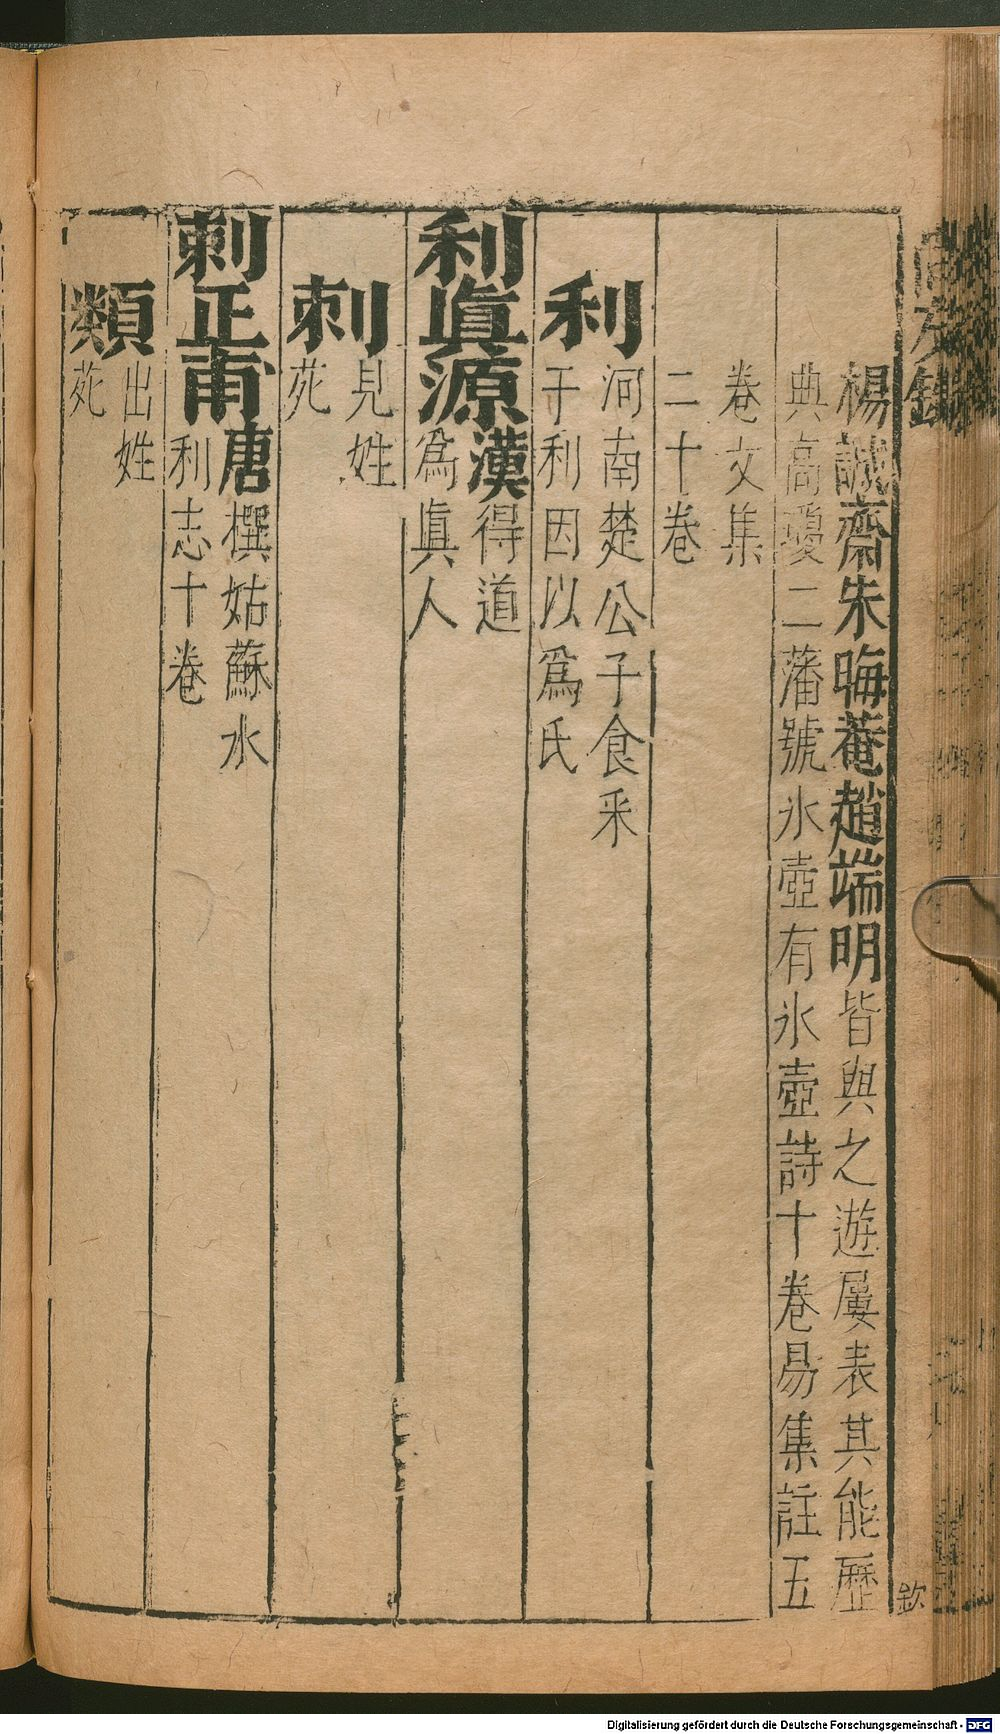 楊誠齋朱晦菴趙端明皆與之遊屢表其能歷
典高瓊二藩號氷壺有氷壺詩十卷易集註五
卷文集
二十卷
利
河南楚公子食采
于利因以爲氏
利真源漢得道
爲真人
刺
見姓
苑
刺正甫唐撰姑蘇水
利志十卷
類
出姓
苑
欽
Digitalisierung gefördert durch die Deutsche Forschungsgemeinschaft - DFG